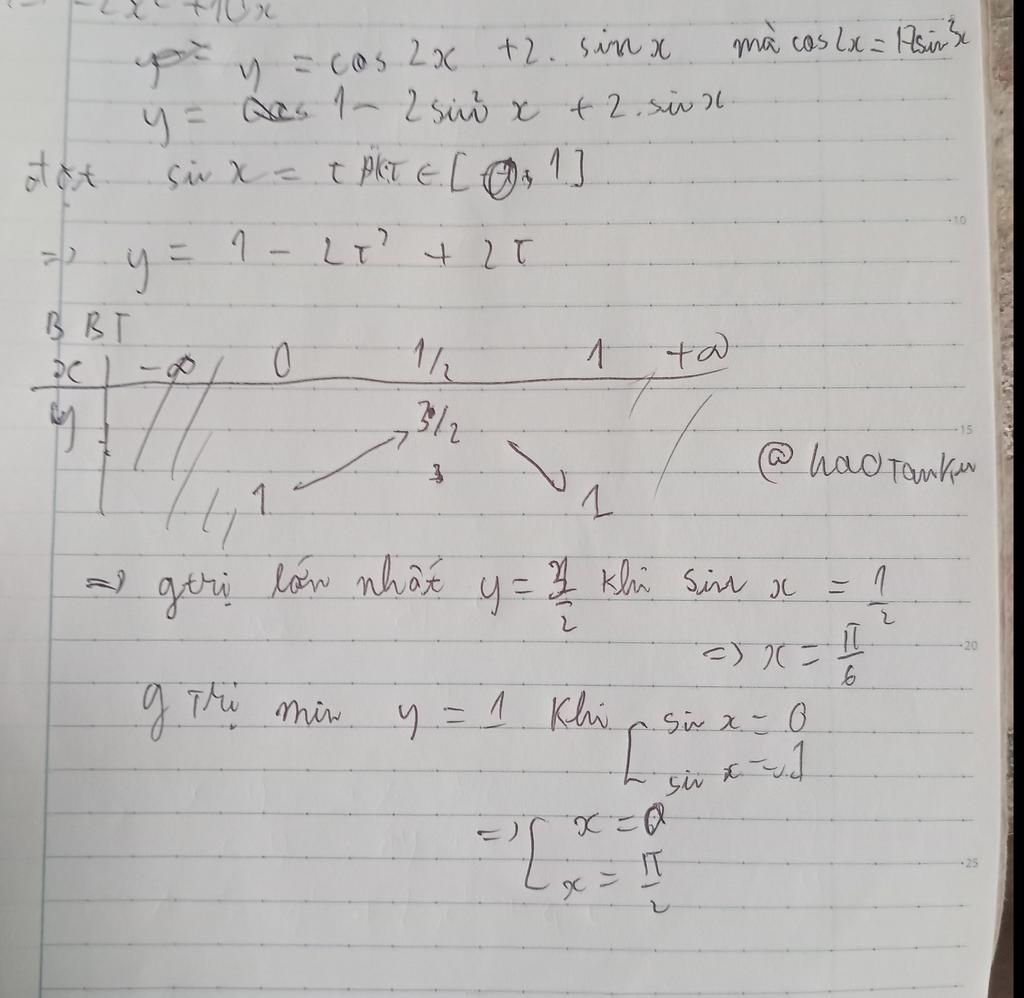 -2x² + 10x
y = cos 2x + 2. sin x mà cos 2x = 1-2sin²x
y = 1 - 2 sin² x + 2. sin x
đặt sin x = t ĐK T ∈ [0; 1]
=> y = 1 - 2t² + 2t
BBT
x -∞ 0 1/2 1 +∞
y 3/2
1 1
@haoTanku
=> gtrị lớn nhất y = 3/2 khi sin x = 1/2
=> x = π/6
g Trị min y = 1 Khi [ sin x = 0
sin x = 1
=> [ x = 0
x = π/2
10
15
20
25